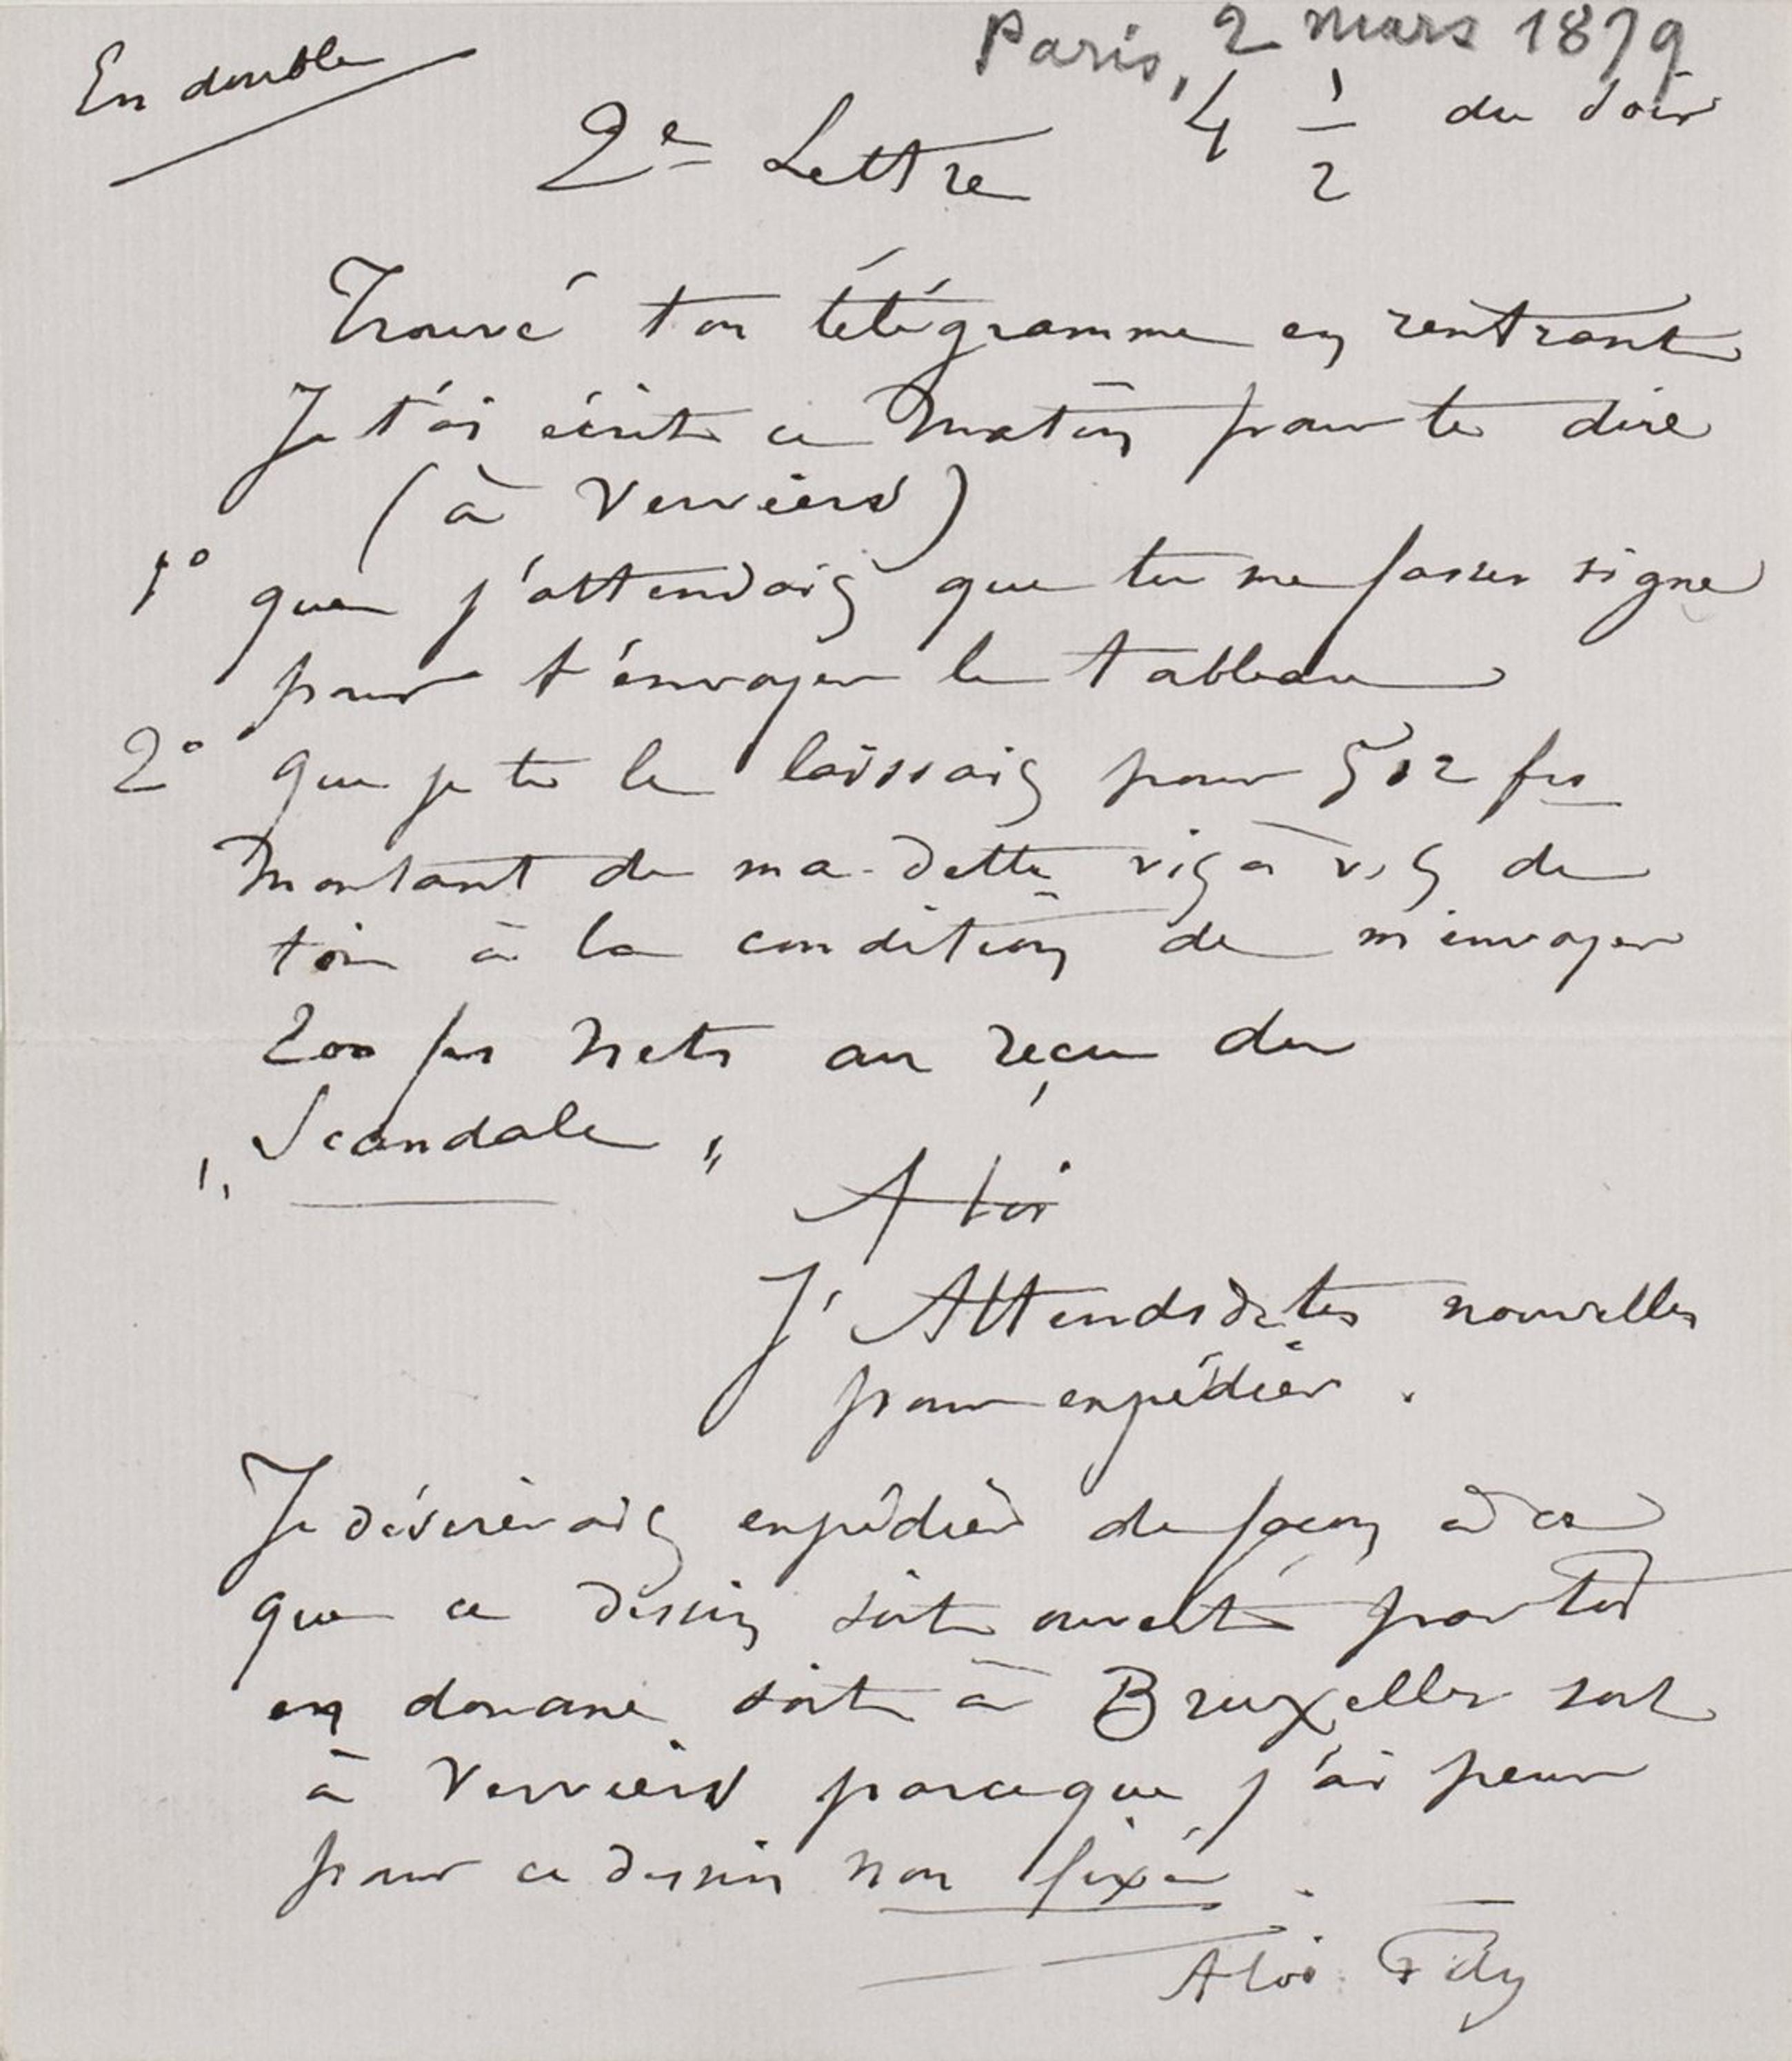 En double
Paris, 2 mars 1879
2e Lettre 4 1/2 du soir
Trouvé ton télégramme en rentrant
Je t'ai écrit ce matin pour te dire
(à Verviers)
1° que j'attendais que tu me fasses signe
pour t'envoyer le tableau
2° que je te le laissais pour 512 frs
montant de ma dette vis à vis de
toi à la condition de m'envoyer
200 frs nets au reçu du
"Scandale"
A toi
J'Attends de tes nouvelles
pour expédier.
Je désirerais expédier de façon à ce
que ce dessin soit ouvert par toi
en douane soit à Bruxelles soit
à Verviers parceque j'ai peur
pour ce dessin non fixé.
A toi. Fély